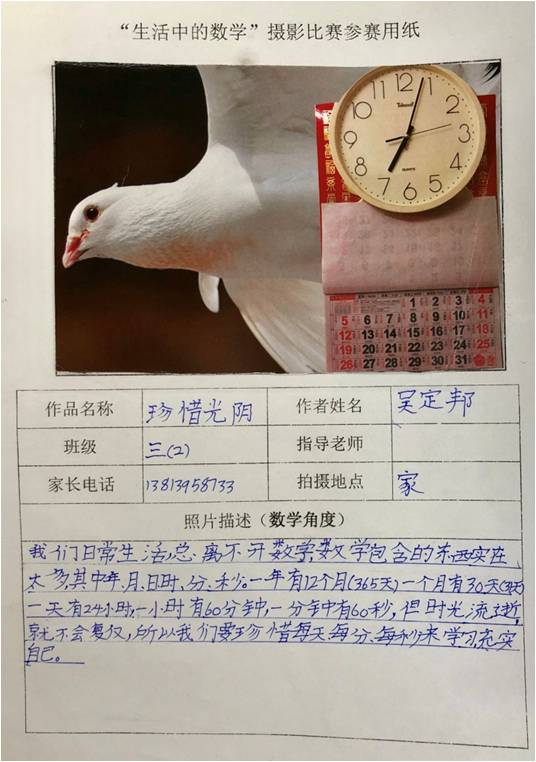 “生活中的数学”摄影比赛参赛用纸
11 12 1
10 2
9 3
8 4
7 6 5
QUARTZ
1 2 3 4
5 6 7 8 9 10 11
12 13 14 15 16 17 18
19 20 21 22 23 24 25
26 27 28 29 30 31
作品名称 珍惜光阴 作者姓名 吴定邦
班级 三(2) 指导老师
家长电话 13813958733 拍摄地点 家
照片描述（数学角度）
我们日常生活,总离不开数学,数学包含的东西实在
太多,其中年、月、日时、分、秒。一年有12个月(365天)一个月有30天(31天)
一天有24小时,一小时有60分钟,一分钟有60秒,但时光流逝,
就不会复返,所以我们要珍惜每天每分、每秒来学习,充实
自己。